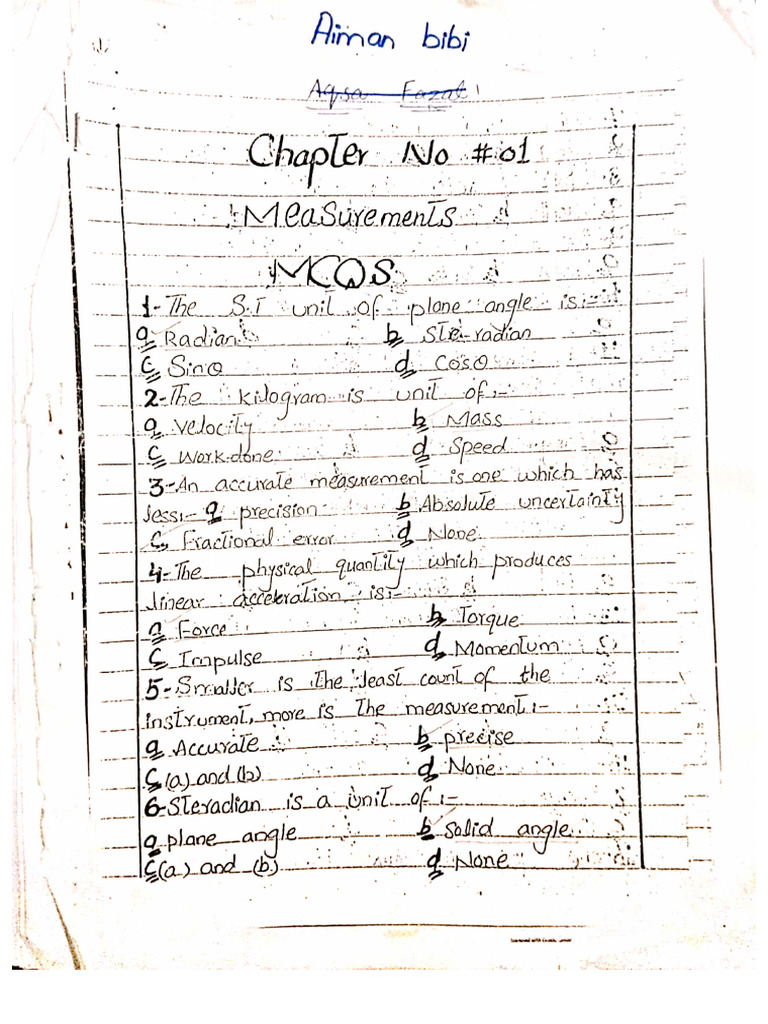 Aiman bibi
Aqsa Fazal
Chapter No #01
Measurements
MCQS
1- The S.I unit of plane angle is:-
a Radian b Ste-radian
c Sinθ d Cosθ
2- The kilogram is unit of:-
a Velocity b Mass
c Work done d Speed
3- An accurate measurement is one which has
less:- a precision b Absolute uncertainty
c, Fractional error d None
4- The physical quantity which produces
linear acceleration is:-
a Force b Torque
c Impulse d Momentum
5- Smaller is the least count of the
instrument, more is the measurement:-
a Accurate b precise
c (a) and (b) d None
6- Steradian is a unit of:-
a plane angle b solid angle
c (a) and (b) d None